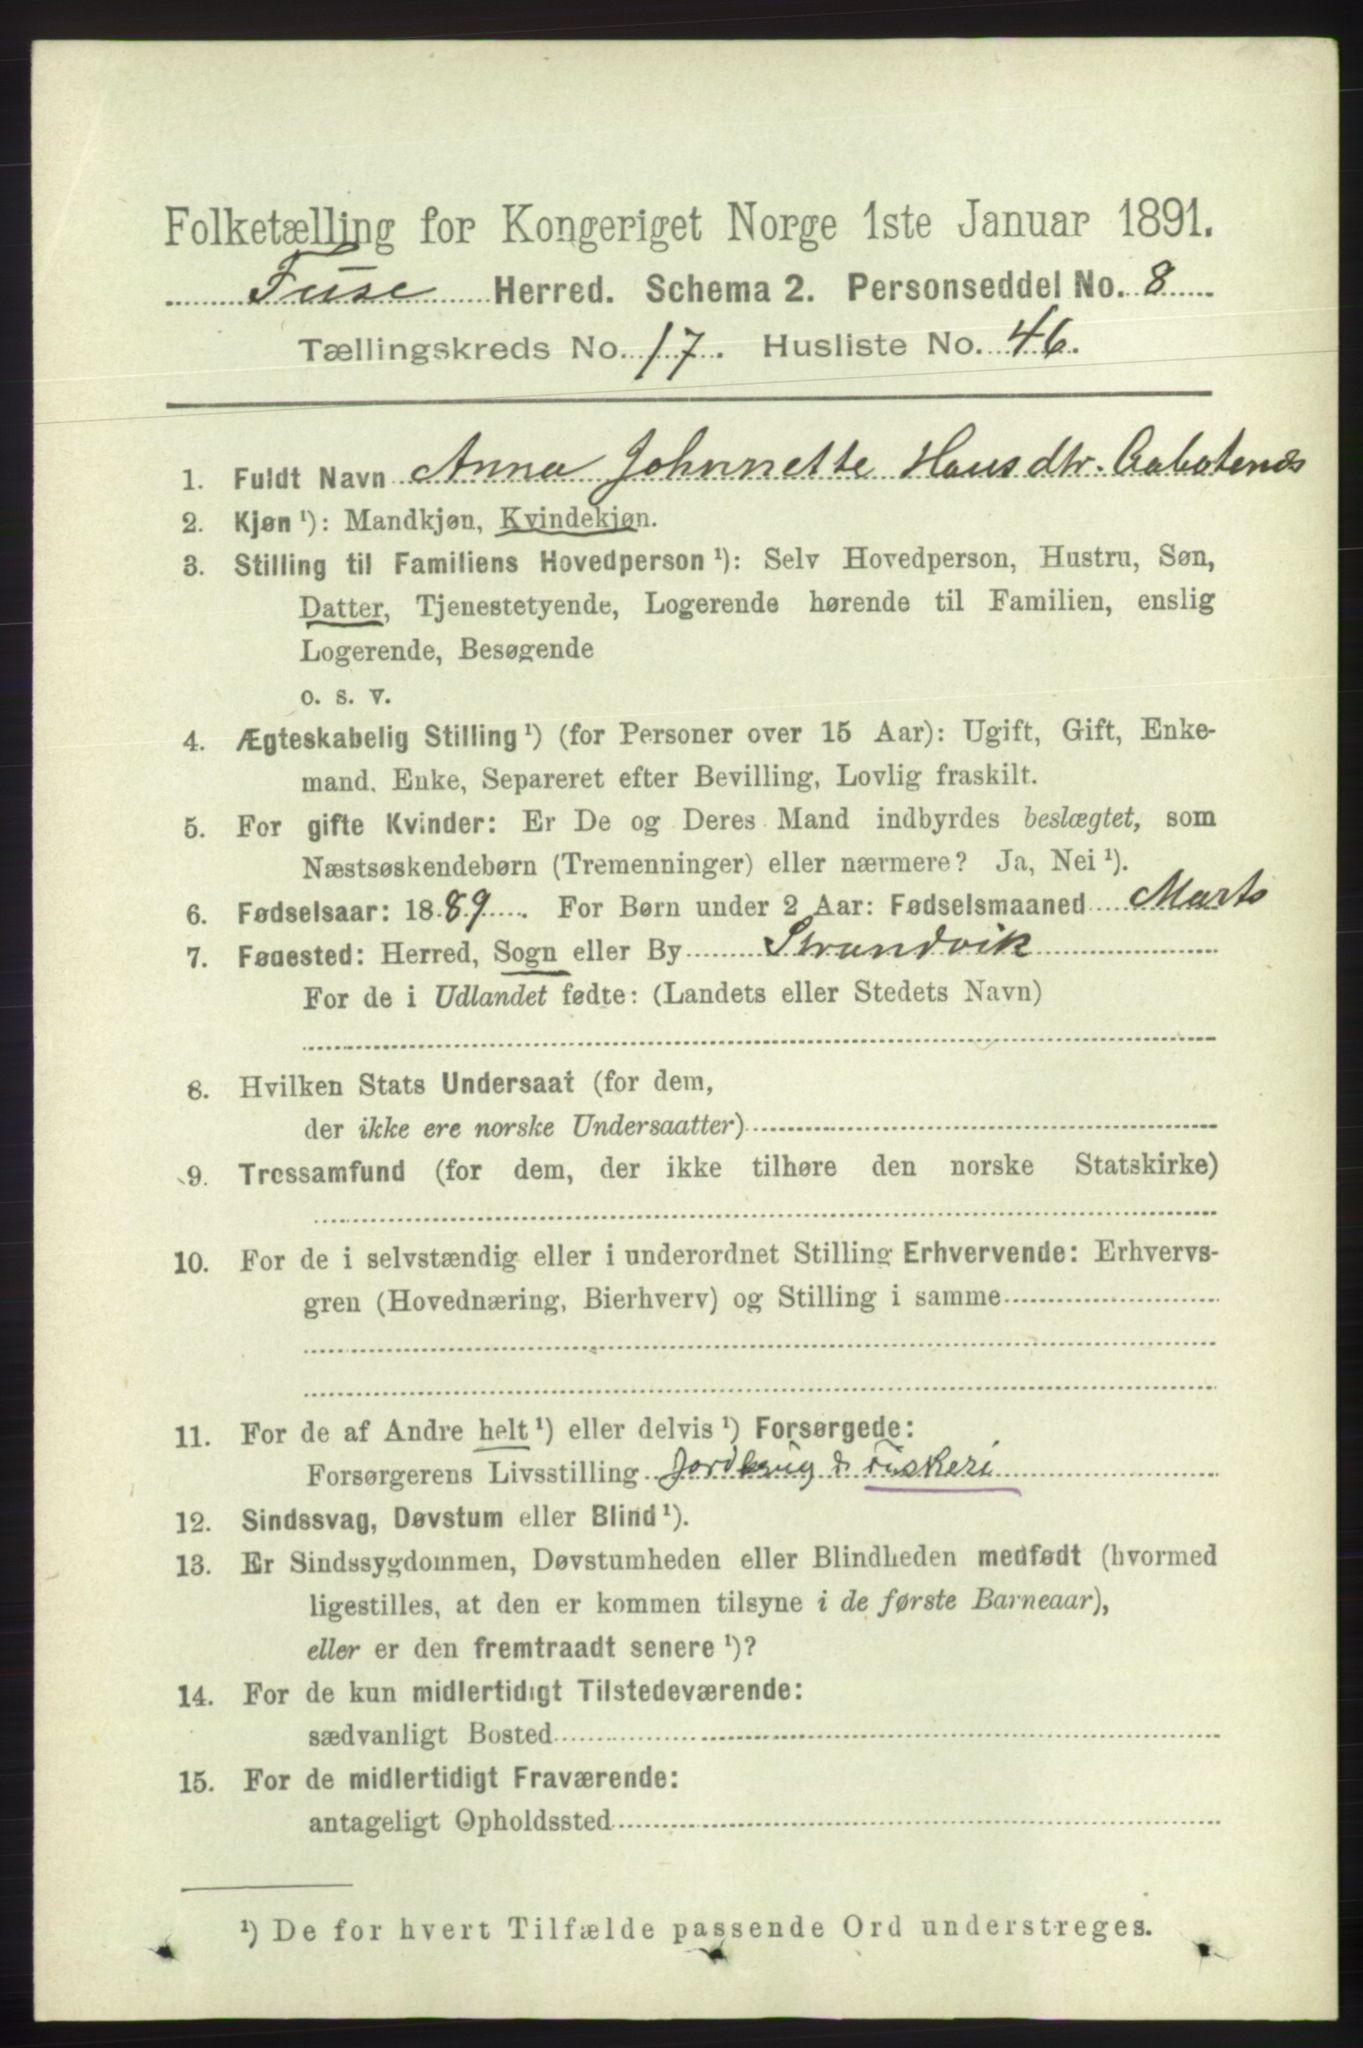 Folketælling for Kongeriget Norge 1ste Januar 1891.
Fuse Herred. Schema 2. Personseddel No. 8
Tællingskreds No. 17. Husliste No. 46.
1. Fuldt Navn Anna Johnnette Hansdtr.
2. Kjøn ¹): Mandkjøn, Kvindekjøn.
3. Stilling til Familiens Hovedperson ¹): Selv Hovedperson, Hustru, Søn,
Datter, Tjenestetyende, Logerende hørende til Familien, enslig
Logerende, Besøgende
o. s. v.
4. Ægteskabelig Stilling ¹) (for Personer over 15 Aar): Ugift, Gift, Enke-
mand, Enke, Separeret efter Bevilling, Lovlig fraskilt.
5. For gifte Kvinder: Er De og Deres Mand indbyrdes beslægtet, som
Næstsøskendebørn (Tremenninger) eller nærmere? Ja, Nei ¹).
6. Fødselsaar: 1889. For Børn under 2 Aar: Fødselsmaaned Marts
7. Fødested: Herred, Sogn eller By Strandvik
For de i Udlandet fødte: (Landets eller Stedets Navn)
8. Hvilken Stats Undersaat (for dem,
der ikke ere norske Undersaatter)
9. Trossamfund (for dem, der ikke tilhøre den norske Statskirke)
10. For de i selvstændig eller i underordnet Stilling Erhvervende: Erhvervs-
gren (Hovednæring, Bierhverv) og Stilling i samme
11. For de af Andre helt ¹) eller delvis ¹) Forsørgede:
Forsørgerens Livsstilling Jordbrug & Fiskeri
12. Sindssvag, Døvstum eller Blind ¹).
13. Er Sindssygdommen, Døvstumheden eller Blindheden medfødt (hvormed
ligestilles, at den er kommen tilsyne i de første Barneaar),
eller er den fremtraadt senere ¹)?
14. For de kun midlertidigt Tilstedeværende:
sædvanligt Bosted
15. For de midlertidigt Fraværende:
antageligt Opholdssted
¹) De for hvert Tilfælde passende Ord understreges.